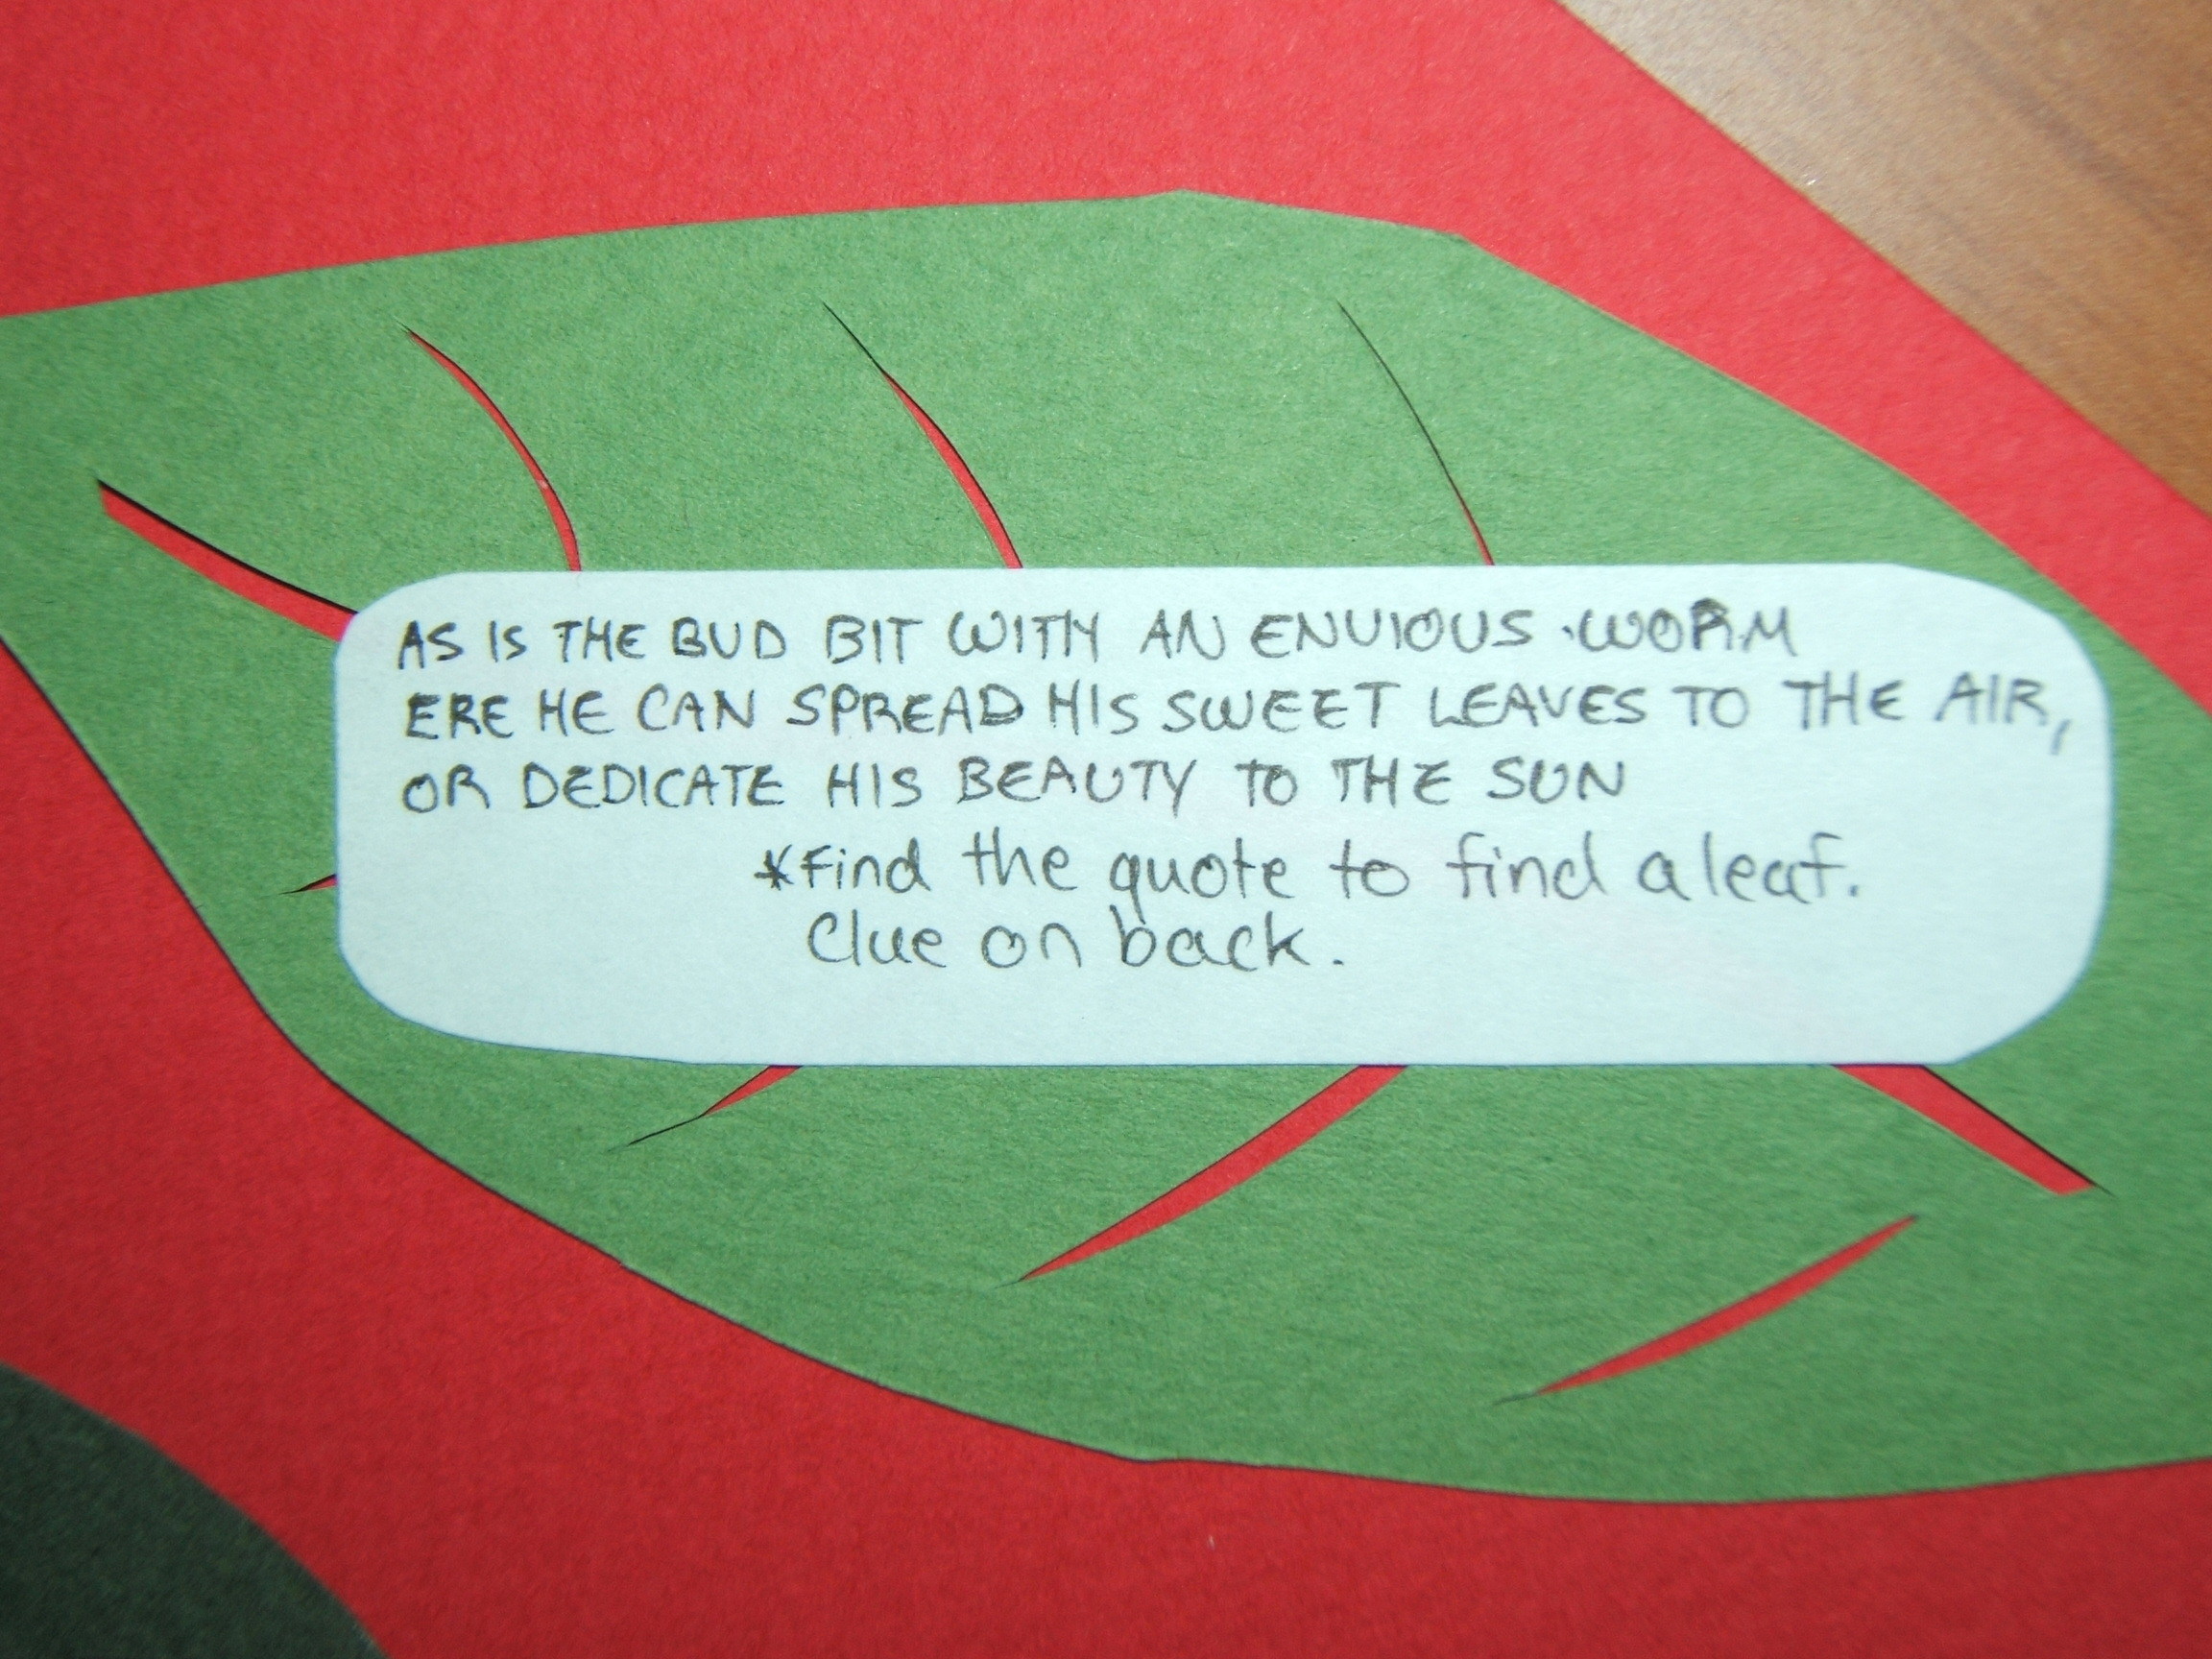 AS IS THE BUD BIT WITH AN ENVIOUS WORM
ERE HE CAN SPREAD HIS SWEET LEAVES TO THE AIR,
OR DEDICATE HIS BEAUTY TO THE SUN
*Find the quote to find a leaf.
Clue on back.